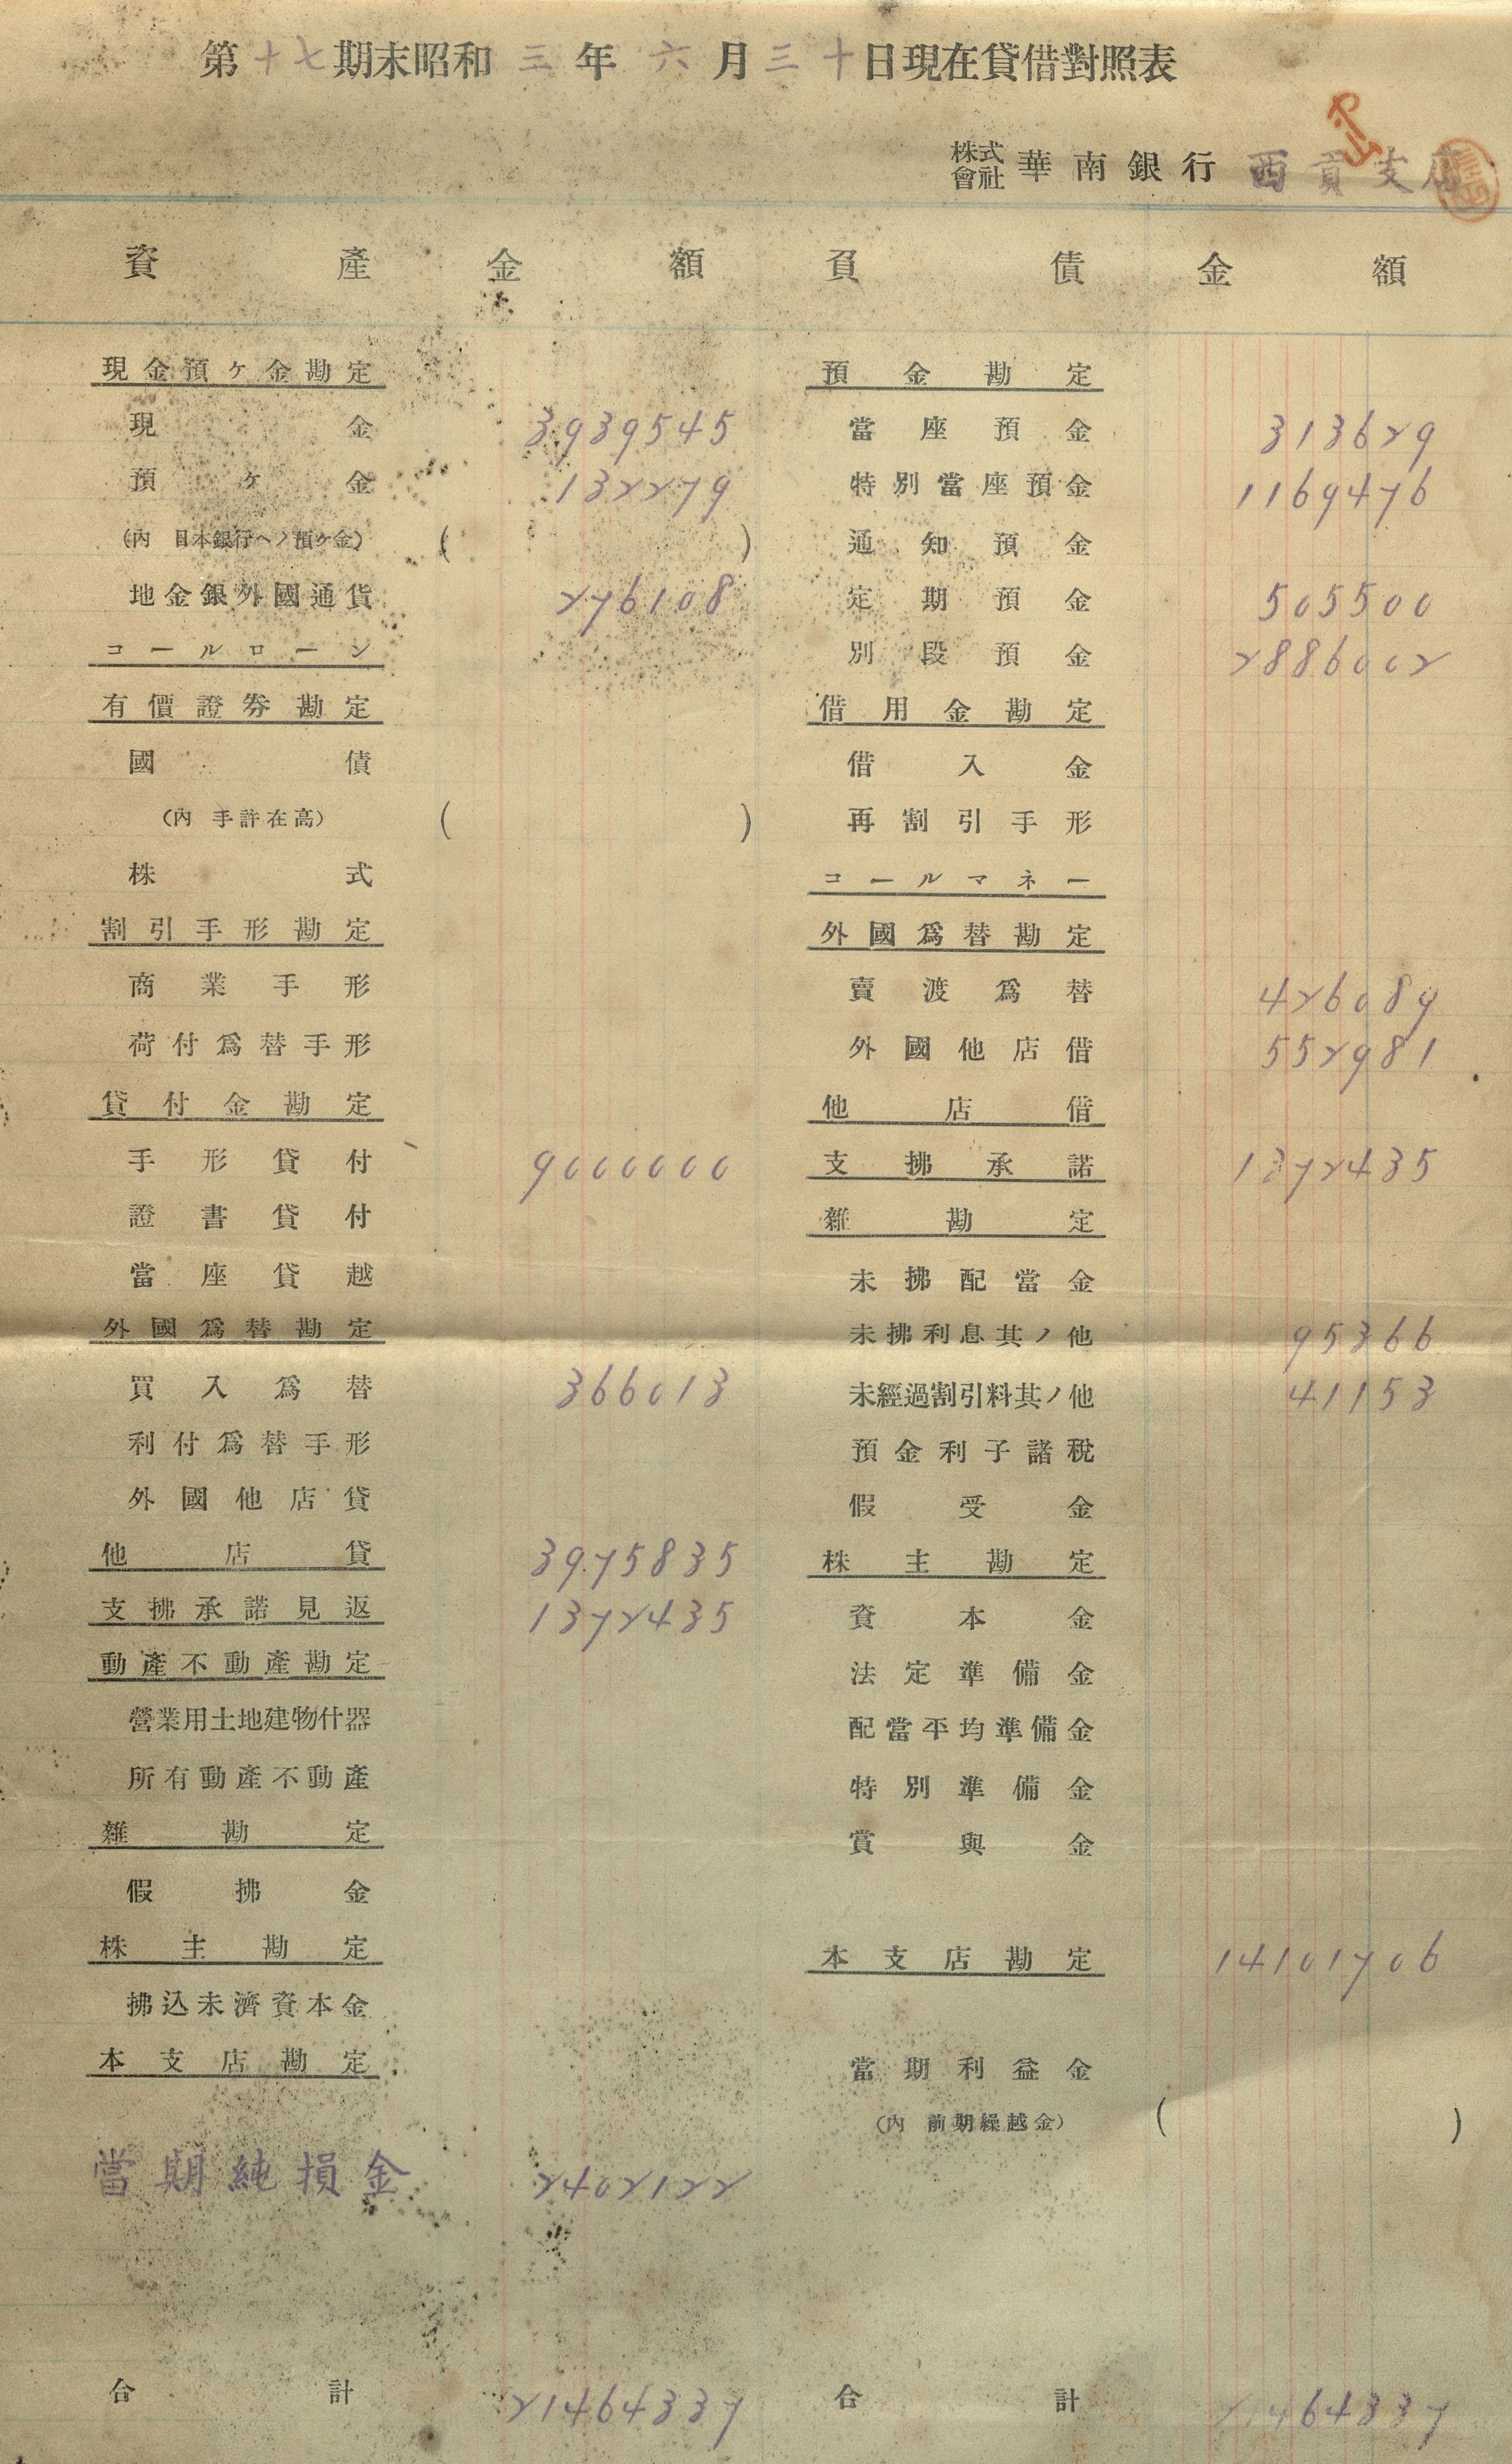 第十七期末昭和三年六月三十日現在貸借對照表
株式會社 華南銀行 西貢支店
資產 金額
現金預ヶ金勘定
現金 3939545
預ヶ金 132279
(內 日本銀行ヘノ預ケ金) ( )
地金銀外國通貨 276108
コールローン
有價證券勘定
國債
(內 手許在高) ( )
株式
割引手形勘定
商業手形
荷付爲替手形
貸付金勘定
手形貸付 9000000
證書貸付
當座貸越
外國爲替勘定
買入爲替 366013
利付爲替手形
外國他店貸
他店貸 3975835
支拂承諾見返 1372435
動產不動產勘定
營業用土地建物什器
所有動產不動產
雜勘定
假拂金
株主勘定
拂込未濟資本金
本支店勘定
當期純損金 2402122
合計 21464337
負債 金額
預金勘定
當座預金 313629
特別當座預金 1169476
通知預金
定期預金 505500
別段預金 2886002
借用金勘定
借入金
再割引手形
コールマネー
外國爲替勘定
賣渡爲替 426089
外國他店借 552981
他店借
支拂承諾 1372435
雜勘定
未拂配當金
未拂利息其ノ他 95366
未經過割引料其ノ他 41153
預金利子諸稅
假受金
株主勘定
資本金
法定準備金
配當平均準備金
特別準備金
賞與金
本支店勘定 14101706
當期利益金
(內 前期繰越金) ( )
合計 21464337